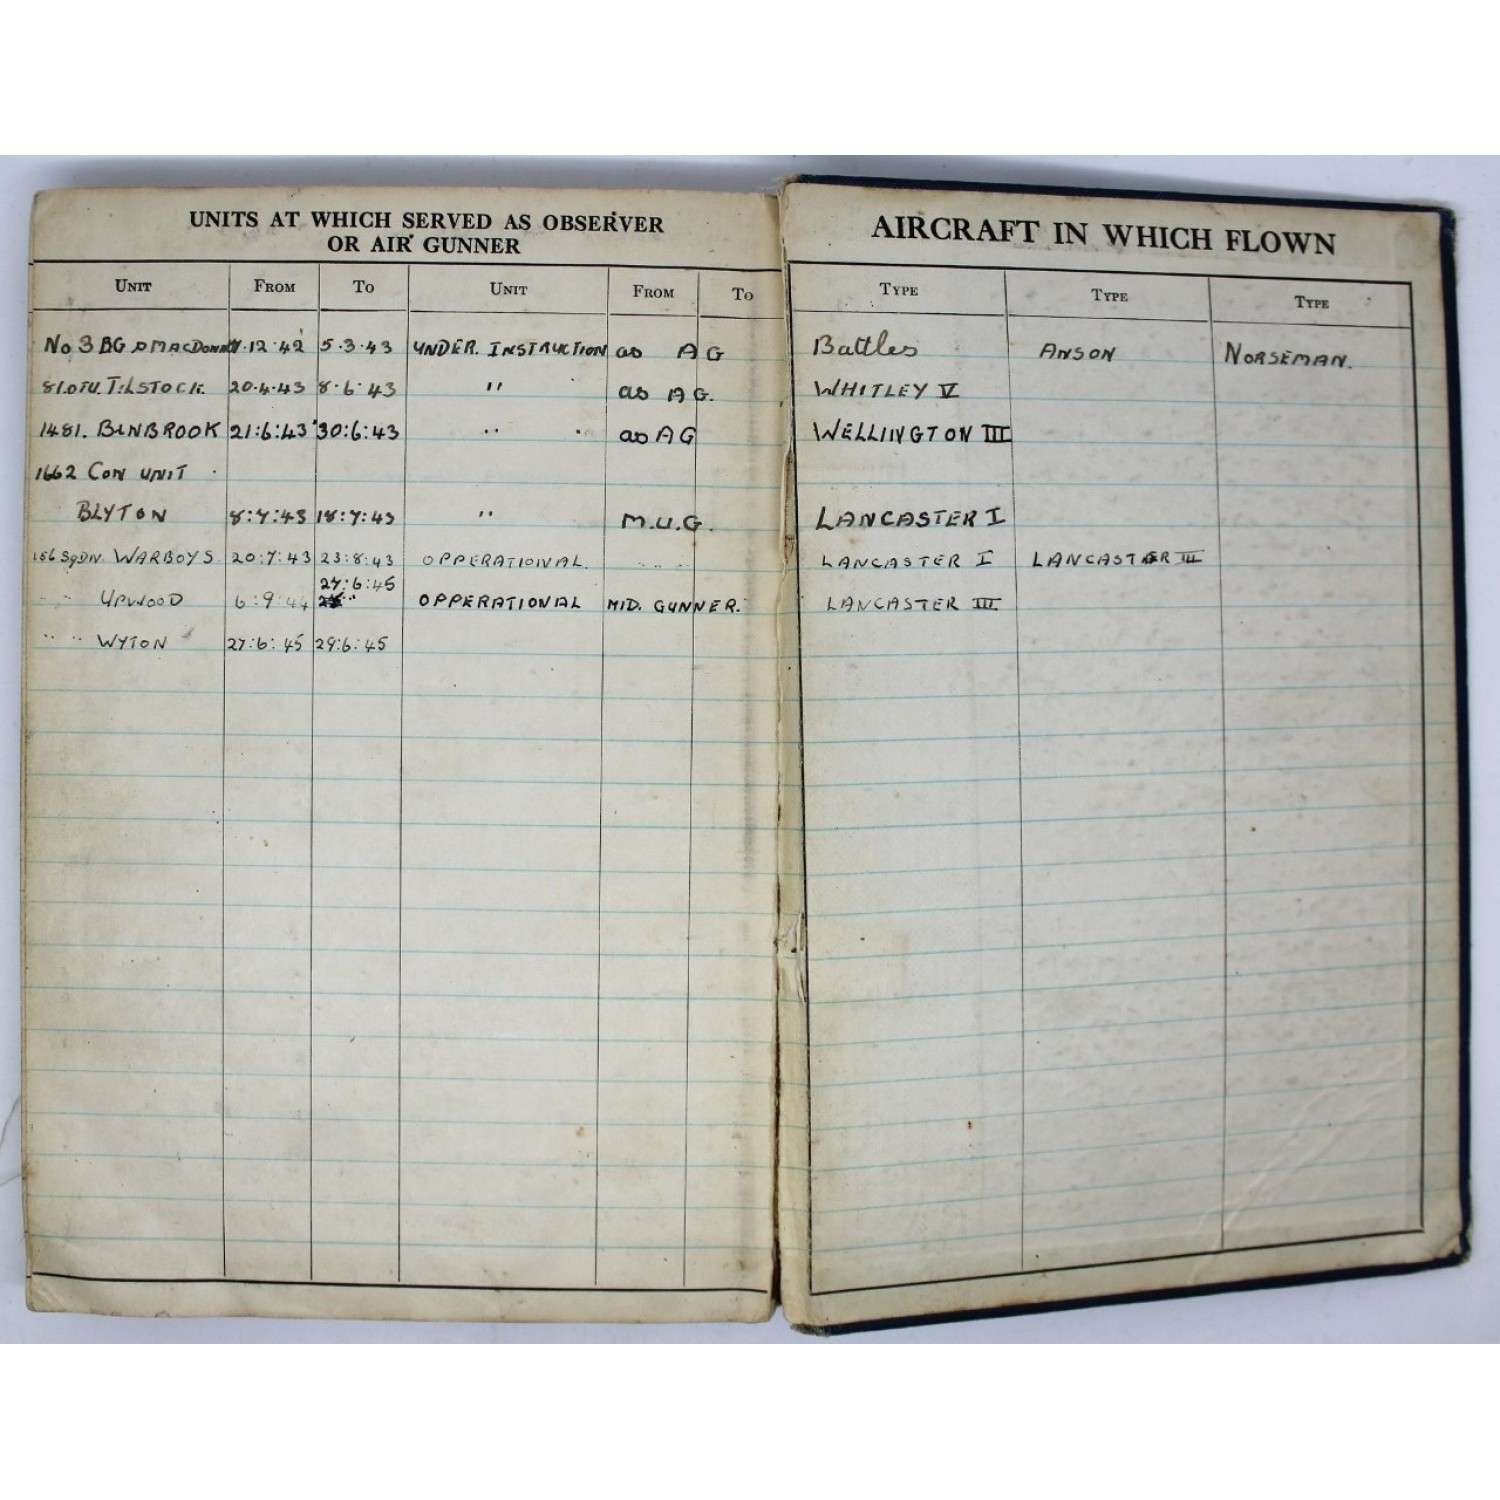 UNITS AT WHICH SERVED AS OBSERVER
OR AIR GUNNER
UNIT FROM TO UNIT FROM TO
No 3 BG MACDONALD 12.42 5.3.43 UNDER. INSTRUCTION as AG
81.OTU. TILSTOCK. 20.4.43 8.6.43 " as AG.
1481. BINBROOK 21:6:43 30:6:43 " as AG
1662 CON UNIT
BLYTON 8:7:43 18:7:43 " M.U.G.
156 SQDN. WARBOYS 20:7:43 23:8:43 OPPERATIONAL. " "
27:6:45
" UPWOOD 6:9:44 OPPERATIONAL MID. GUNNER.
" " WYTON 27:6:45 29:6:45
AIRCRAFT IN WHICH FLOWN
TYPE TYPE TYPE
Battles ANSON NORSEMAN.
WHITLEY V
WELLINGTON III
LANCASTER I
LANCASTER I LANCASTER III
LANCASTER III